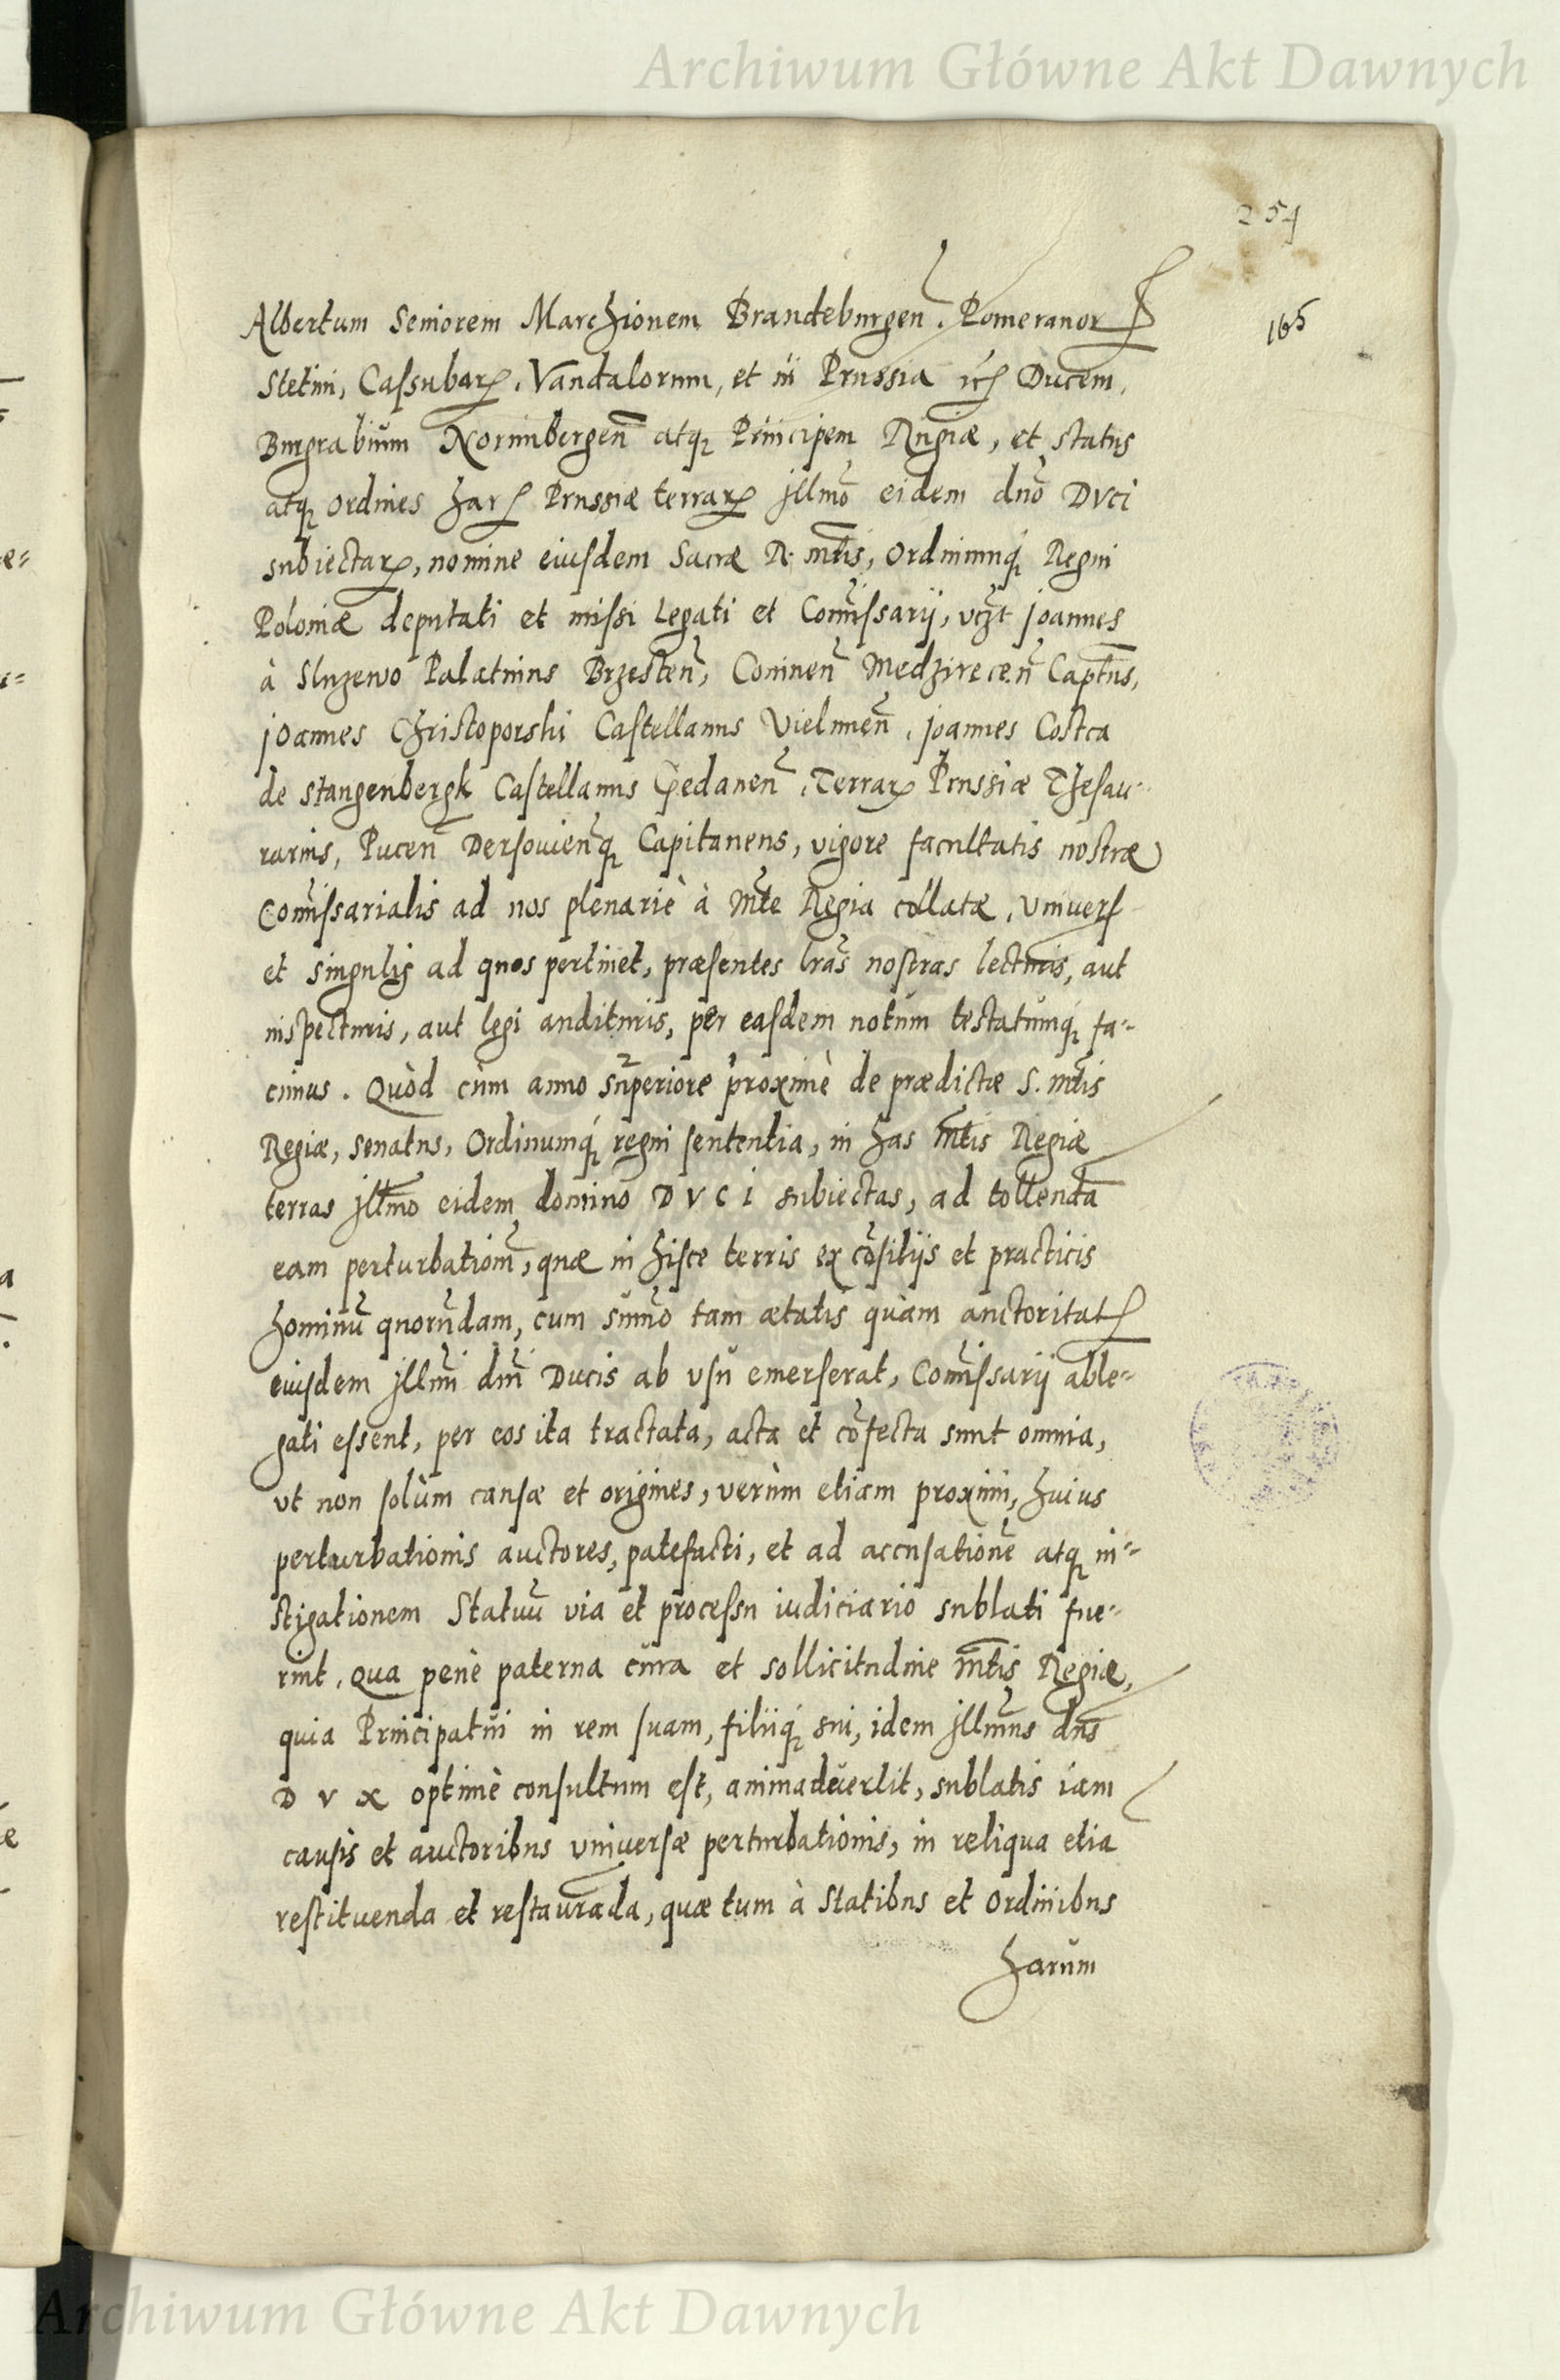 Archiwum Główne Akt Dawnych
254
165
Albertum Seniorem Marchionem Brandeburgeñ. Pomeranorꝝ
Stetini, Cassubarꝝ, Vandalorum, et in Prussia ꝛc Ducem,
Burgrabium Norimbergeñ atqꝫ Principem Rugiæ, et status
atqꝫ ordines harꝝ Prussiæ terrarꝝ Jllmõ eidem dnõ DVci
subiectarꝝ, nomine eiusdem Sacræ R. mt̃is, Ordinumqꝫ Regni
Poloniæ deputati et missi legati et Com̃issarij, vcꝫt Joannes
à Sluzewo Palatinus Brzesteñ, Conineñ Medzireceñ Capt̃ns,
Joannes Christoporski Castellanus Vieluneñ, Joannes Costca
de Stangenbergk Castellanus Gedaneñ, Terrarꝝ Prussiæ Thesau-
rarius, Puceñ Dersouieñqꝫ Capitaneus, vigore facultatis nostræ
Com̃issarialis ad nos plenariè à Mt̃e Regia collatæ, vniuers
et singulis ad quos pertinet, præsentes lr̃as nostras lecturis, aut
inspecturis, aut legi audituris, per easdem notum testatumqꝫ fa-
cimus. Quòd cùm anno superiore proximè de prædictæ S. mt̃is
Regiæ, senatus, Ordinumqꝫ regni sententia, in has mt̃is Regiæ
terras Jllmõ eidem domino DVCI subiectas, ad tollendã
eam perturbationẽ, quæ in hisce terris ex cõsilijs et practicis
hominũ quorũdam, cum sum̃o tam ætatis quàm auctoritatꝭ
eiusdem Jllmi dñi Ducis ab vsu emerserat, Com̃issarij able-
gati essent, per eos ita tractata, acta et cõfecta sunt omnia,
vt non solùm causæ et origines, verùm etiam proximi, huius
perturbationis auctores, patefacti, et ad accusationẽ atqꝫ in-
stigationem Statuũ via et processu iudiciario sublati fue-
rint. Qua penè paterna cura et sollicitudine mt̃is Regiæ,
quia Principatui in rem suam, filiiqꝫ sui, idem Jllmũs dñs
DVX optimè consultum est, animaduertit, sublatis iam
causis et auctoribus vniuersæ perturbationis, in reliqua etia
restituenda et restaurãda, quæ tum à Statibus et Ordinibus
harum
Archiwum Główne Akt Dawnych